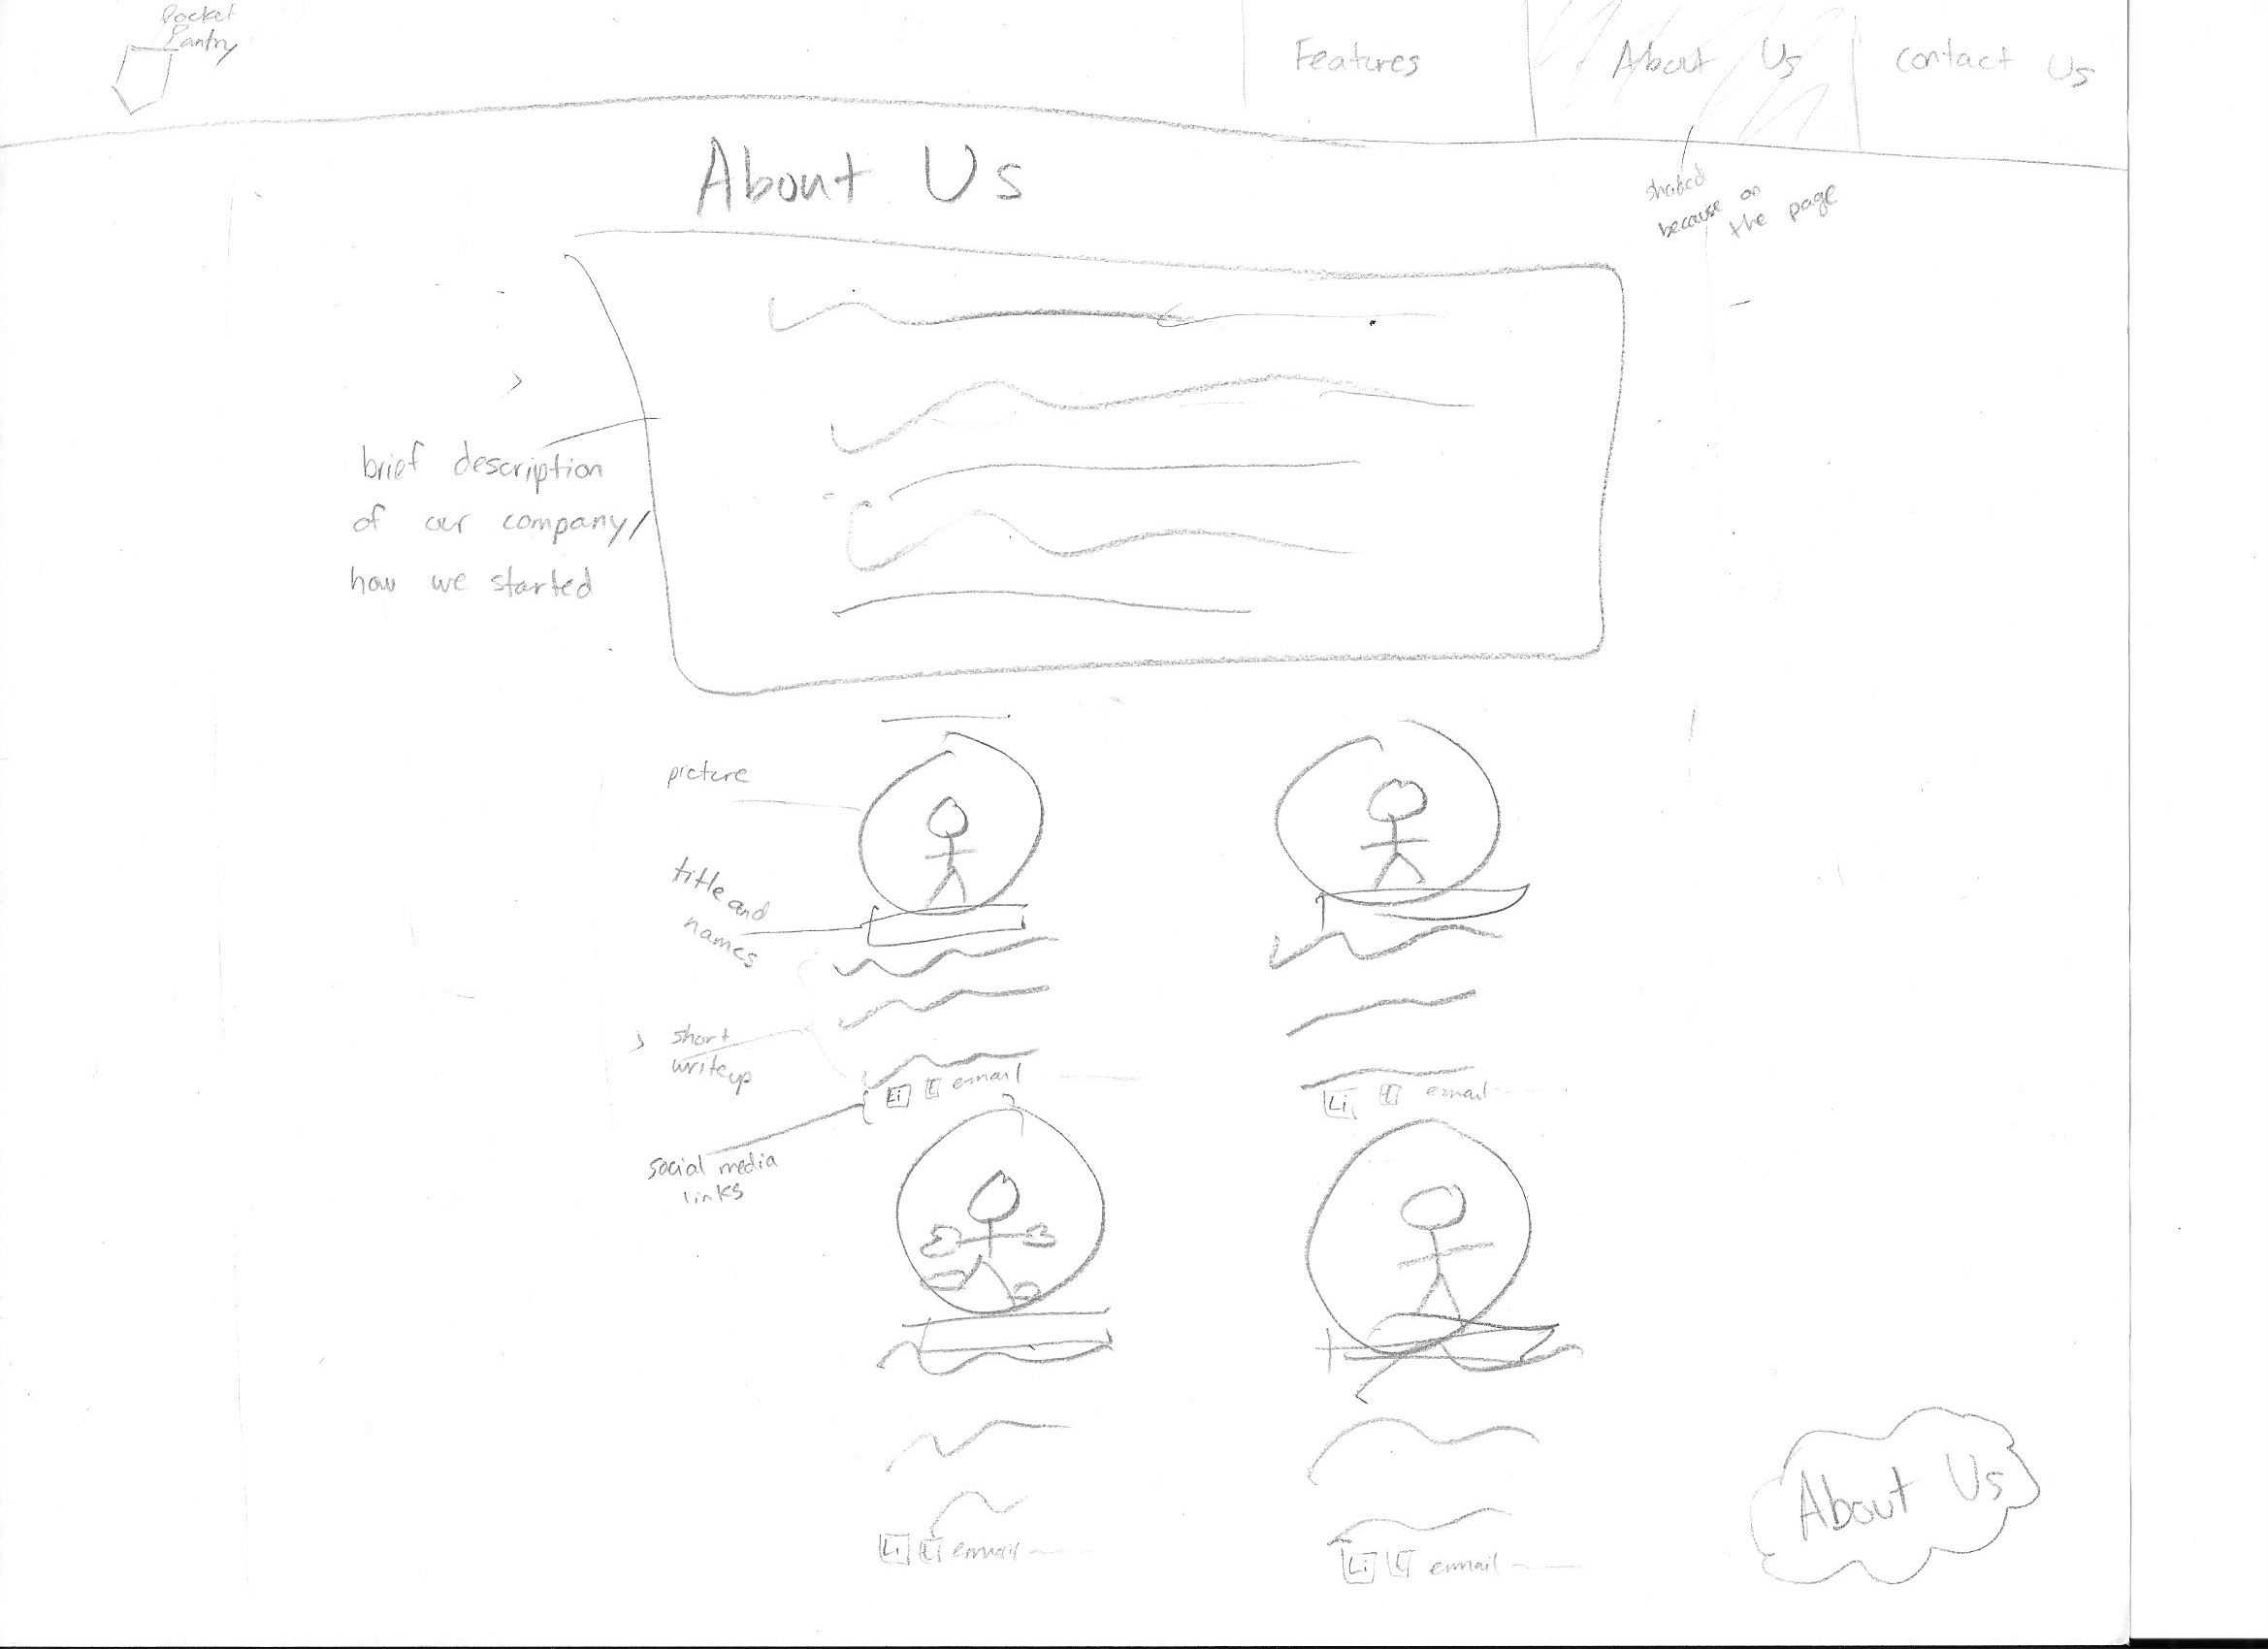 Pocket
Pantry
Features
About Us
Contact Us
shaded
because on
the page
About Us
brief description
of our company/
how we started
picture
title and
names
short
writeup
Li t email
Li t email
social media
links
Li t email
Li t email
About Us